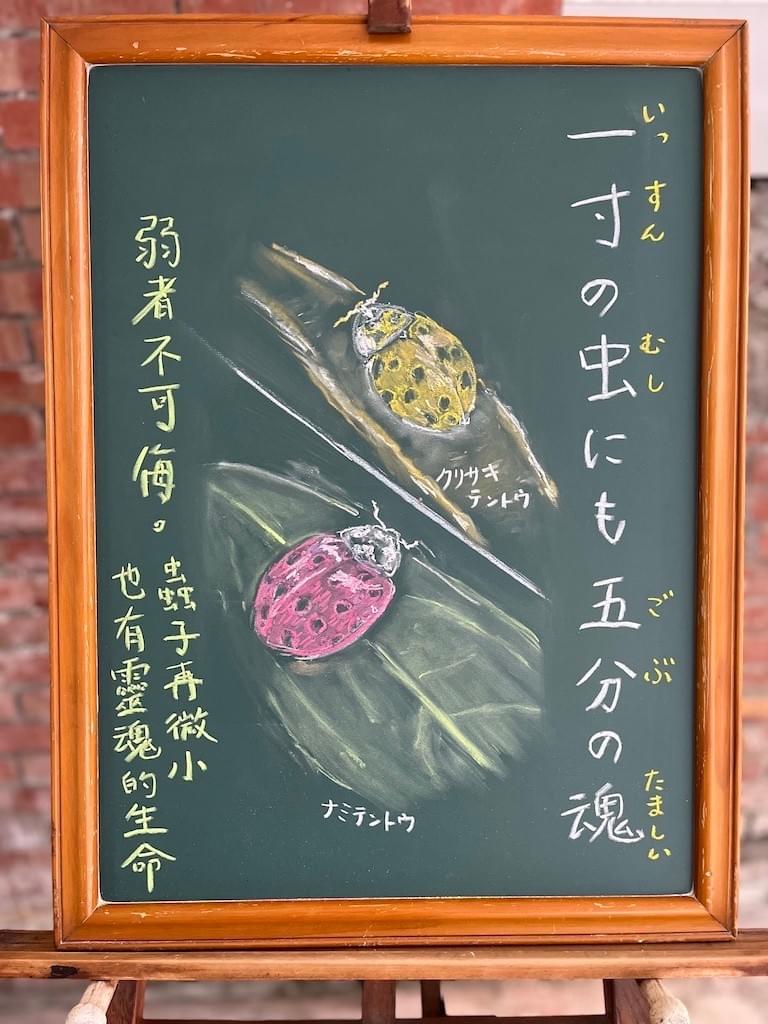 一寸の虫にも五分の魂
いっ すん むし ご ぶ たましい
クリサキ
テントウ
ナミテントウ
弱者不可侮。
蟲子再微小
也有靈魂的生命